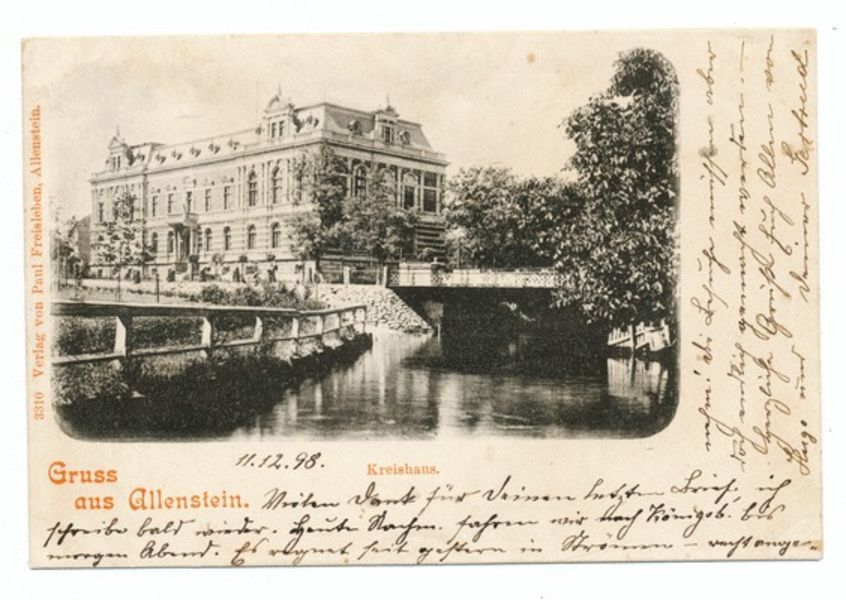 3310 Verlag von Paul Freisleben, Allenstein.
11.12.98.
Kreishaus.
Gruss
aus Allenstein.
Vielen Dank für Deinen letzten Brief, ich
schreibe bald wieder. Heute Nachm. fahren wir nach Königsb. bis
morgen Abend. Es regnet seit gestern in Strömen – recht ange-
nehm! Die Besuche müssen aber
doch endlich gemacht werden. –
Herzliche Grüße Euch Allen von
Hugo und Deiner Gertrud.